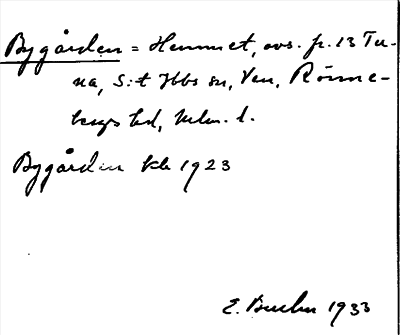 Bygården = Hemmet, avs. fr. 13 Tu-
na, S:t Ibbs sn, Ven, Rönne-
bergs hd, Mlm. l.
Bygården kb 1923
E. 1933